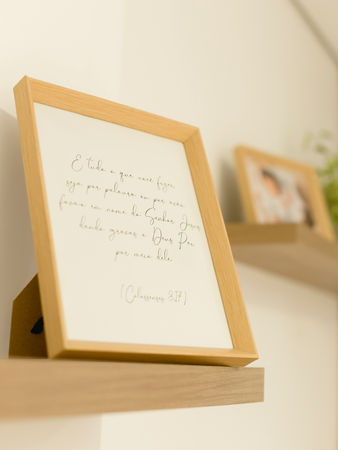 E tudo o que você fizer,
seja por palavras ou por ações,
faça-o em nome do Senhor Jesus
dando graças a Deus Pai
por meio dele
(Colossenses 3:17)